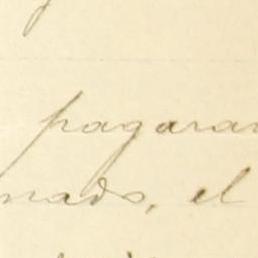 pagara
nado, el